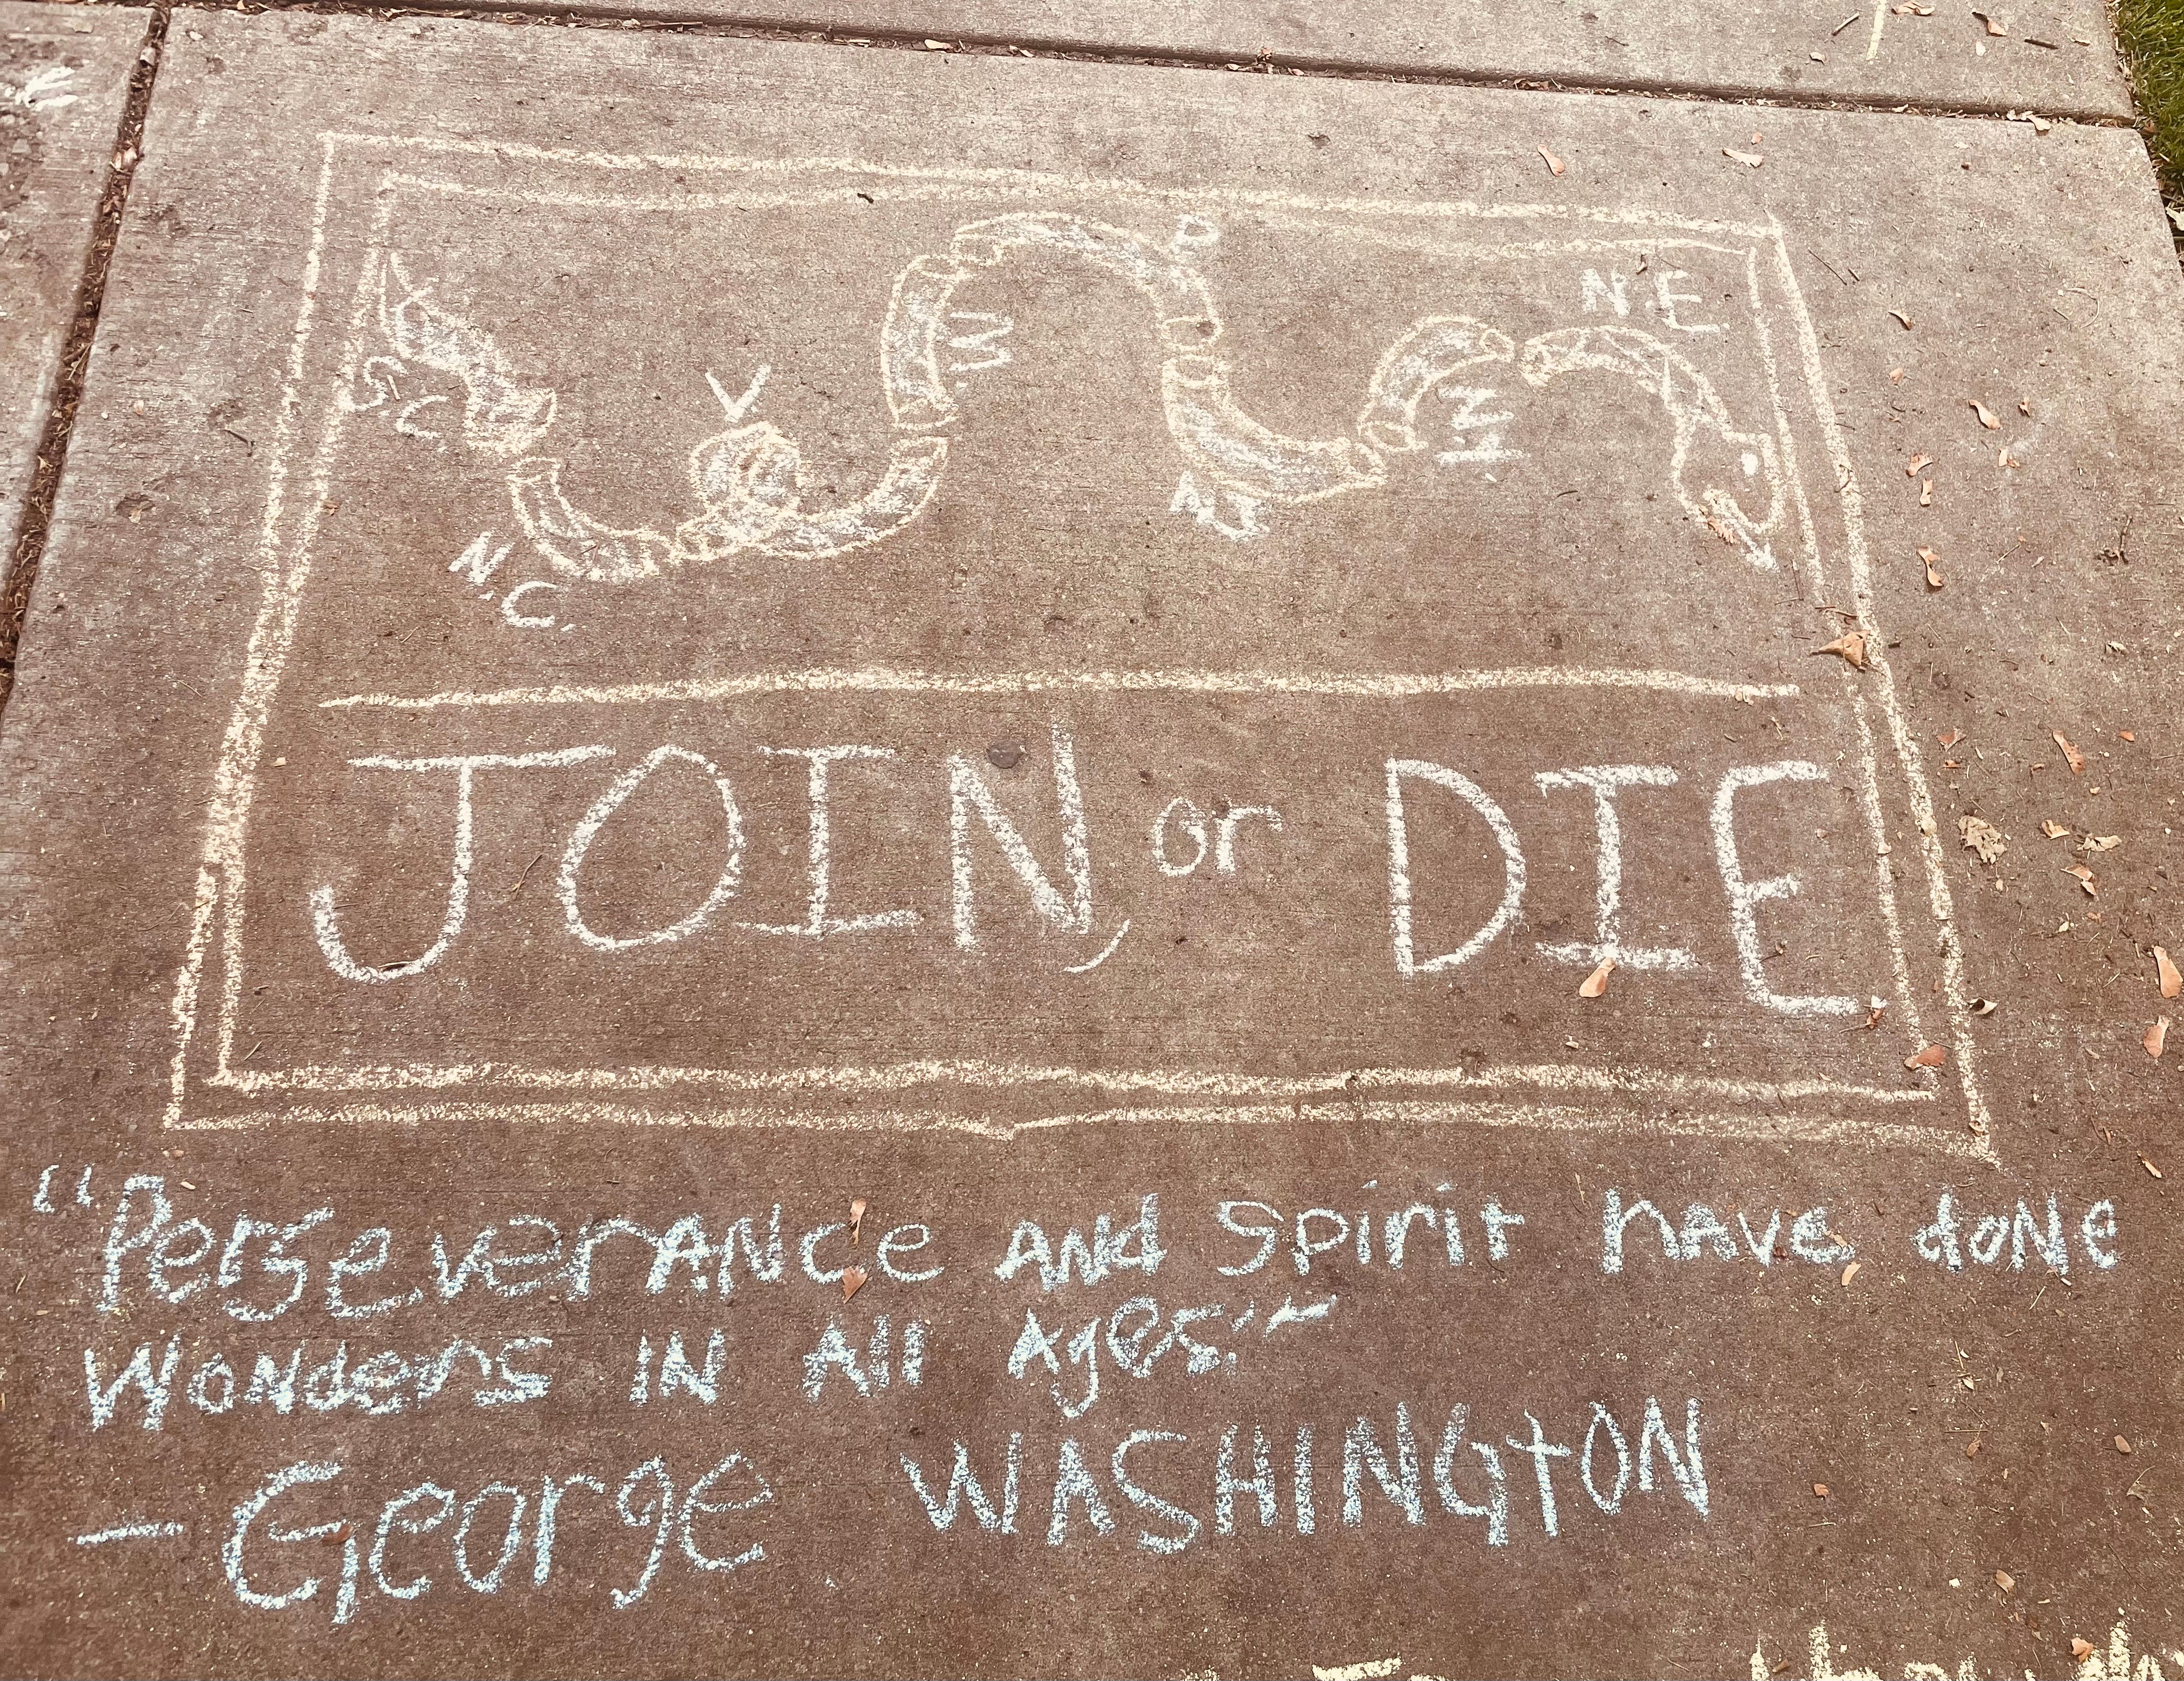 N.E.
P
M.
V
S.C.
N.Y.
NJ
N.C.
JOIN, or DIE
"Perseverance and Spirit have done
Wonders in All Ages." -
- George WASHINGTON